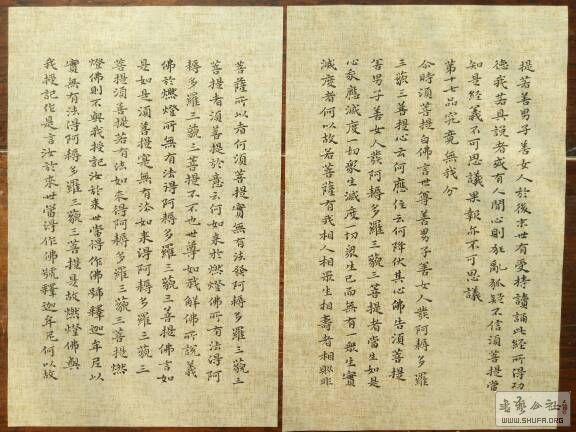 提若善男子善女人於後末世有受持讀誦此經所得功
德我若具說者或有人聞心則狂亂狐疑不信須菩提當
知是經義不可思議果報亦不可思議
第十七品究竟無我分
尒時須菩提白佛言世尊善男子善女人發阿耨多羅
三藐三菩提心云何應住云何降伏其心佛告須菩提
善男子善女人發阿耨多羅三藐三菩提者當生如是
心我應滅度一切眾生滅度一切眾生已而無有一眾生實
滅度者何以故若菩薩有我相人相眾生相壽者相即非
菩薩所以者何須菩提實無有法發阿耨多羅三藐三
菩提者須菩提於意云何如來於燃燈佛所有法得阿
耨多羅三藐三菩提不不也世尊如我解佛所說義
佛於燃燈所無有法得阿耨多羅三藐三菩提佛言如
是如是須菩提實無有法如來得阿耨多羅三藐三
菩提須菩提若有法如來得阿耨多羅三藐三菩提燃
燈佛則不與我授記汝於來世當得作佛號釋迦牟尼以
實無有法得阿耨多羅三藐三菩提是故燃燈佛與
我授記作是言汝於來世當得作佛號釋迦牟尼何以故
WWW.SHUFA.ORG